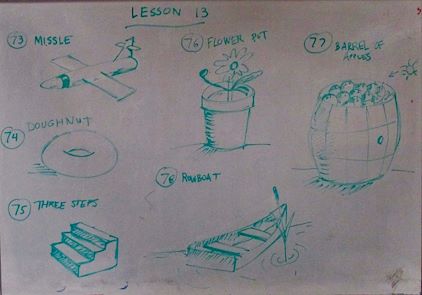 LESSON 13
73 MISSLE
74 DOUGHNUT
75 THREE STEPS
76 FLOWER POT
77 BARREL OF
APPLES
78 ROWBOAT